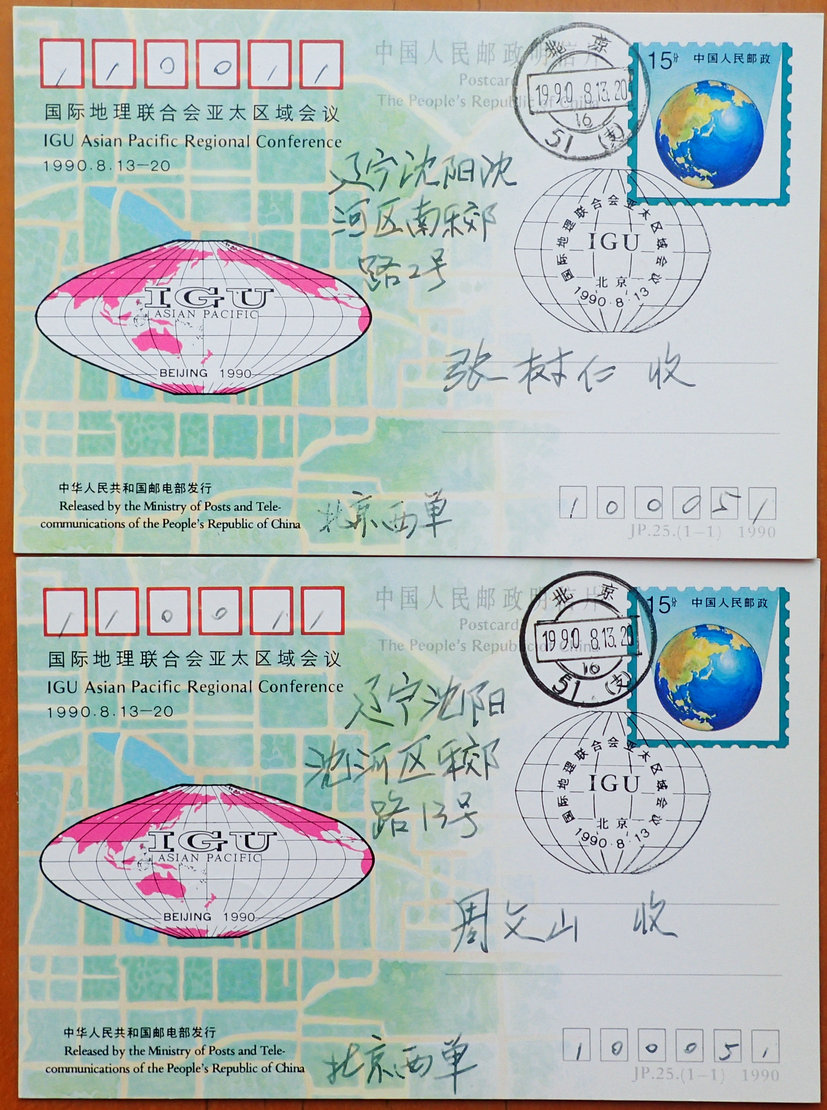 110011
国际地理联合会亚太区域会议
IGU Asian Pacific Regional Conference
1990.8.13—20
中国人民邮政明信片
Postcard
The People's Republic of China
15分 中国人民邮政
北京
1990.8.13.20
16
51(支)
国际地理联合会亚太区域会议
IGU
北京
1990·8·13
辽宁沈阳沈
河区南乐郊
路2号
张树仁 收
IGU
ASIAN PACIFIC
BEIJING 1990
中华人民共和国邮电部发行
Released by the Ministry of Posts and Tele-
communications of the People's Republic of China
北京西单
100051
JP.25.(1-1) 1990
110011
国际地理联合会亚太区域会议
IGU Asian Pacific Regional Conference
1990.8.13—20
中国人民邮政明信片
Postcard
The People's Republic of China
15分 中国人民邮政
北京
1990.8.13.20
16
51(支)
国际地理联合会亚太区域会议
IGU
北京
1990·8·13
辽宁沈阳
沈河区乐郊
路13号
周文山 收
IGU
ASIAN PACIFIC
BEIJING 1990
中华人民共和国邮电部发行
Released by the Ministry of Posts and Tele-
communications of the People's Republic of China
北京西单
100051
JP.25.(1-1) 1990